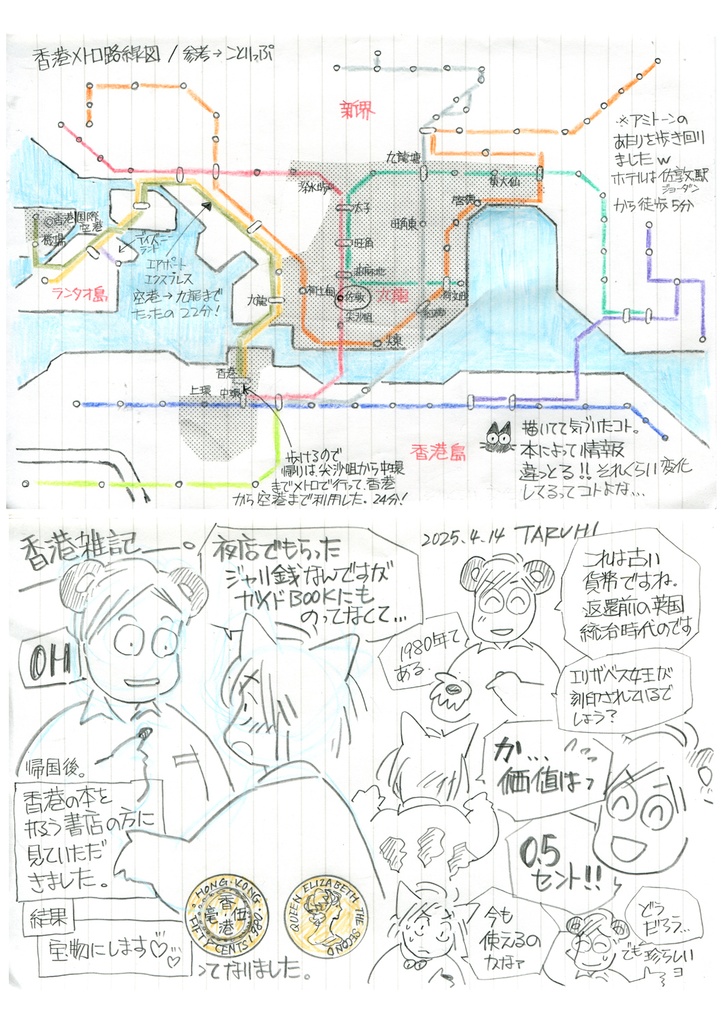 香港メトロ路線図 / 参考→ことりっぷ
新界
※アミトーンの
あたりを歩き回り
ましたw
ホテルは佐敦駅
ジョーダン
から徒歩5分
九龍塘
深水埗
黄大仙
太子
旺角
旺角東
油麻地
佐敦
尖沙咀
九龍
香港国際
空港
ディズニー
ランド
ランタオ島
エアポート
エクスプレス
空港→九龍まで
たったの22分!
九龍
香港
上環 中環
歩けるので
帰りは、尖沙咀から中環
までメトロで行って、香港
から空港まで利用した。24分!
香港島
描いてて気づいたコト。
本によって情報
違っとる!!それくらい変化
してるってコトよな…
香港雑記
2025.4.14 TARUHI
夜店でもらった
ジャリ銭なんですが
ガイドBOOKにも
のってなくて…
OH
これは古い
貨幣ですね。
返還前の英国
統治時代のです
1980年て
ある。
エリザベス女王が
刻印されているで
しょう?
か…
価値はっ
0.5
セント!!
帰国後。
香港の本を
扱う書店の方に
見ていただ
きました。
結果
宝物にします♡♡
ってなりました。
HONG KONG
香港
伍
壱
FIFTY CENTS 1980
QUEEN ELIZABETH THE SECOND
今も
使えるの
かなァ
どう
だろう…
でも珍らしい
ヨ